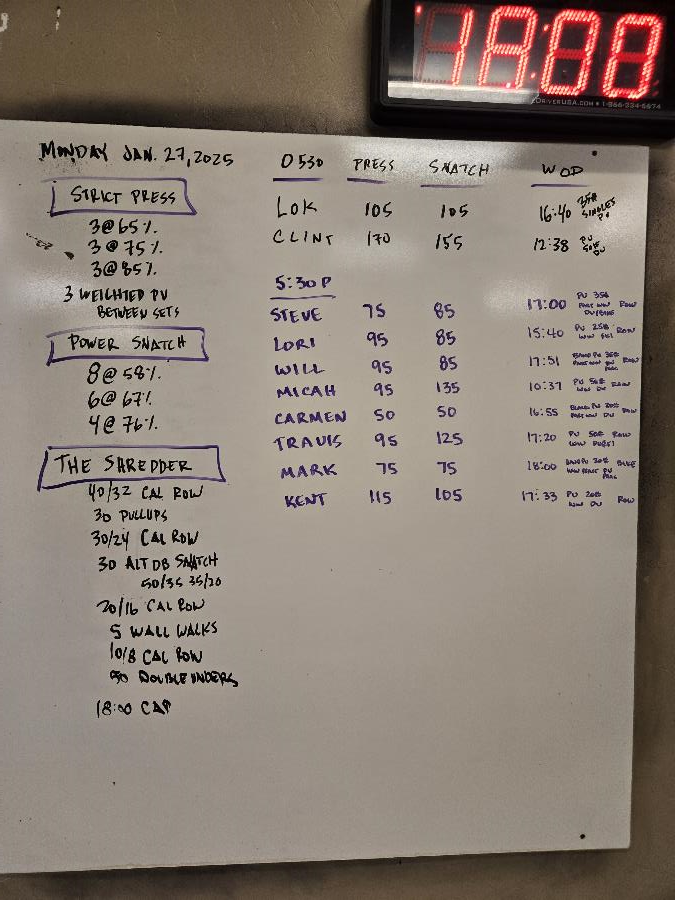 18:00
DRIVERUSA.COM • 1-866-334-6674
MONDAY JAN. 27, 2025
STRICT PRESS
3@65%
3@75%
3@85%
3 WEIGHTED PU
BETWEEN SETS
POWER SNATCH
8@58%
6@67%
4@76%
THE SHREDDER
40/32 CAL ROW
30 PULLUPS
30/24 CAL ROW
30 ALT DB SNATCH
50/35 35/20
20/16 CAL ROW
5 WALL WALKS
10/8 CAL ROW
50 DOUBLE UNDERS
18:00 CAP
0530 PRESS SNATCH WOD
LOK 105 105 16:40 35# SINGLES PU
CLINT 170 155 12:38 PU 50# DU
5:30P
STEVE 75 85 17:00 PU 35# ROW
LORI 95 85 15:40 PU 25# ROW
WILL 95 85 17:51 BAND PU 35# ROW
MICAH 95 135 10:37 PU 50# ROW
WW DU
CARMEN 50 50 16:55 PU 20# ROW
DU
TRAVIS 95 125 17:20 PU 50# ROW
MARK 75 75 18:00 BAND PU 30# BIKE
KENT 115 105 17:33 PU 20# ROW
WW DU